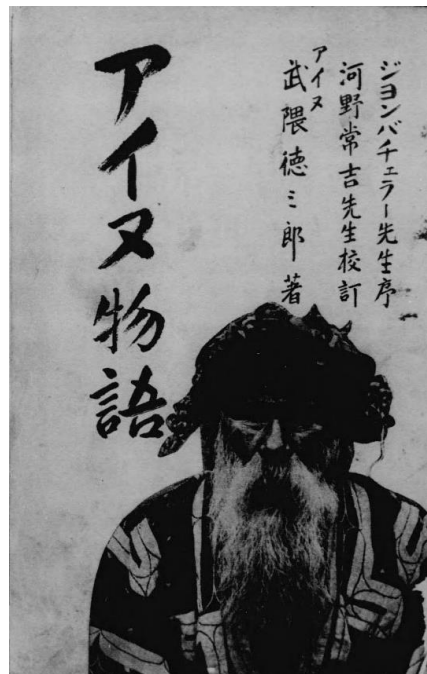 ジヨンバチェラー先生序
河野常吉先生校訂
アイヌ
武隈徳三郎著
アイヌ物語